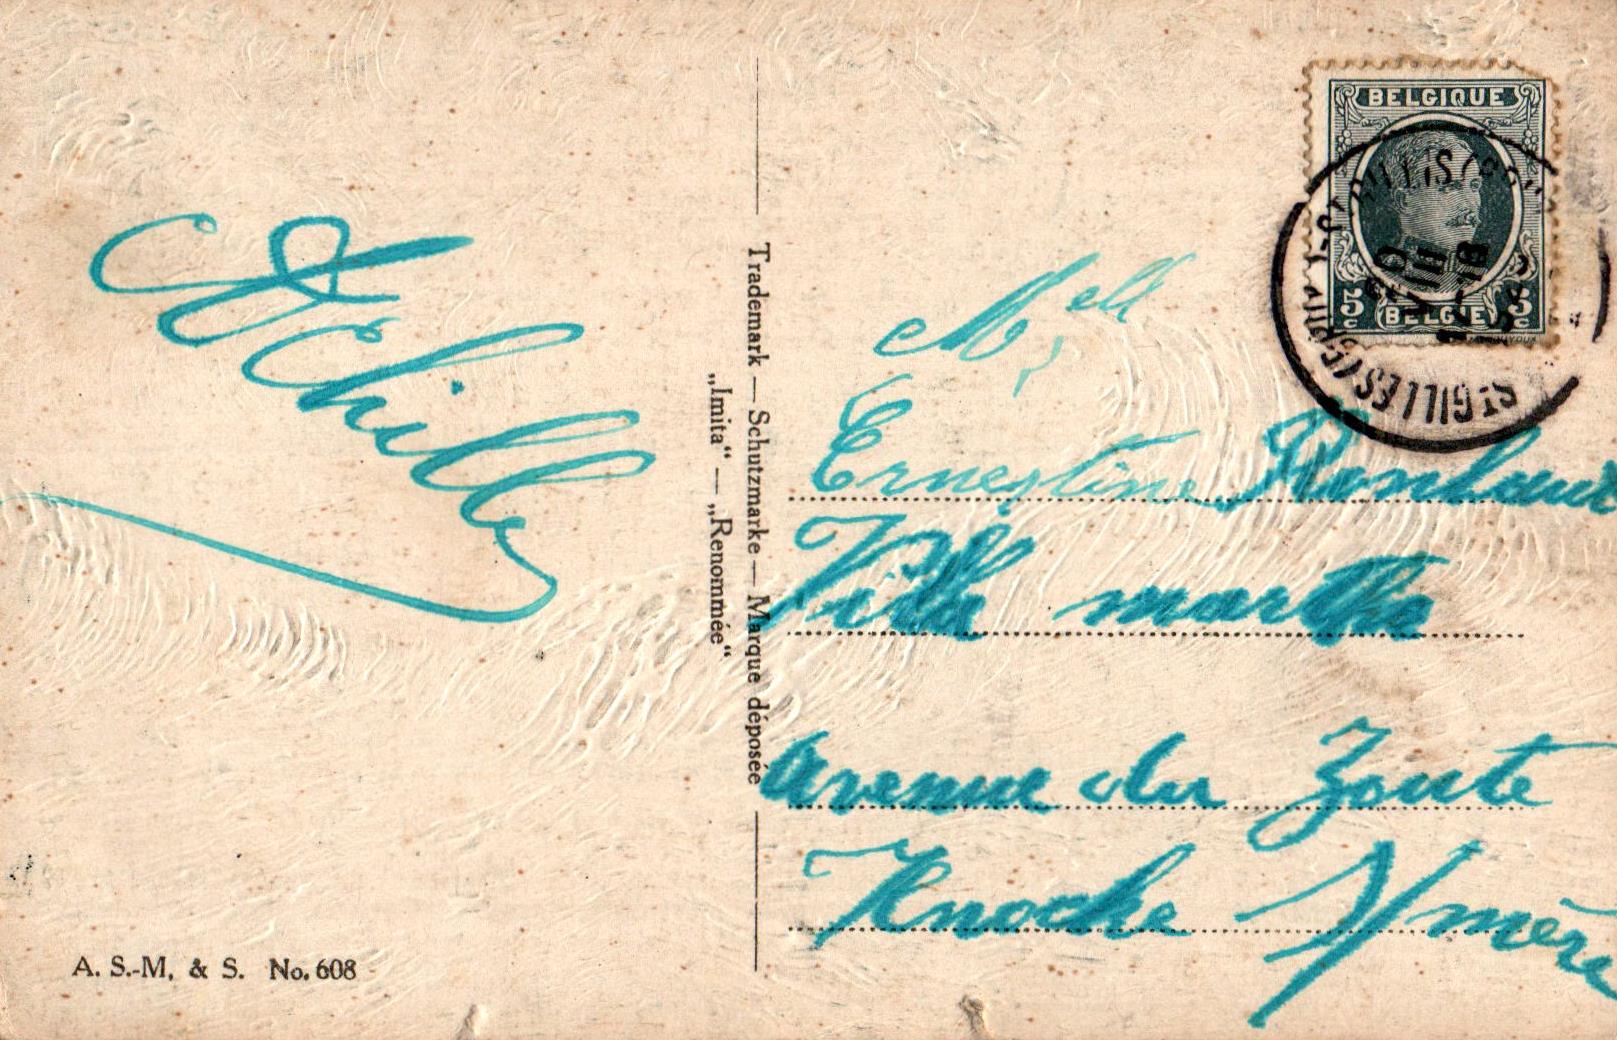 Achille
Trademark — Schutzmarke — Marque déposée
„Imita“ — „Renommée“
A. S.-M. & S. No. 608
BELGIQUE
5c 5c
BELGIË
ST GILLES (
Mell
Ernestine
Villa martha
avenue du Zoute
Knocke s/mer